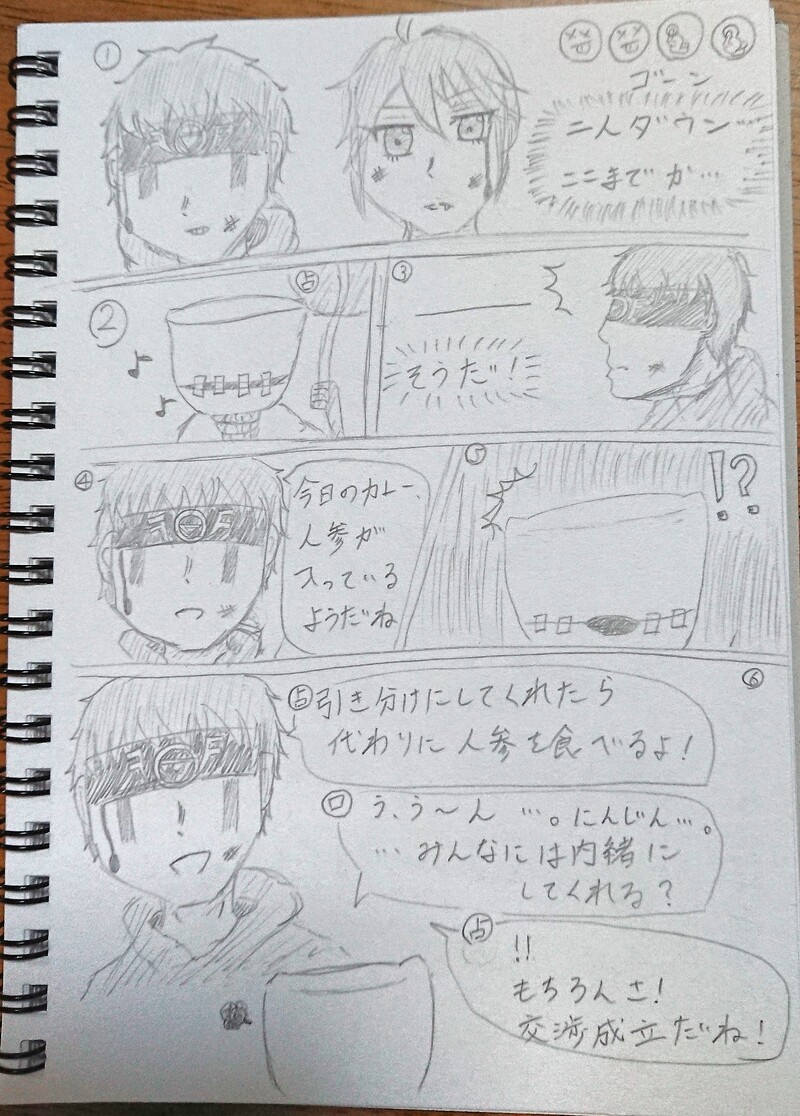 ①
ゴーン
二人ダウン…
ここまでか…
②
占
③
そうだ!
④
今日のカレー、
人参が
入っている
ようだね
⑤
!?
⑥
占 引き分けにしてくれたら
代わりに人参を食べるよ!
ロ う、う〜ん…。にんじん…。
…みんなには内緒に
してくれる?
占 !!
もちろんさ!
交渉成立だね!